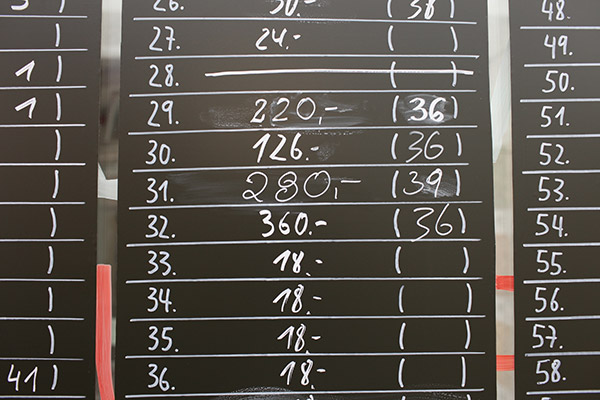 1)
1)
)
)
)
)
)
)
)
)
41)
26. 30.- (38)
27. 24.- ( )
28. ( )
29. 220,- (36)
30. 126.- (36)
31. 280,- (39)
32. 360.- (36)
33. 18.- ( )
34. 18.- ( )
35. 18.- ( )
36. 18.- ( )
48.
49.
50.
51.
52.
53.
54.
55.
56.
57.
58.